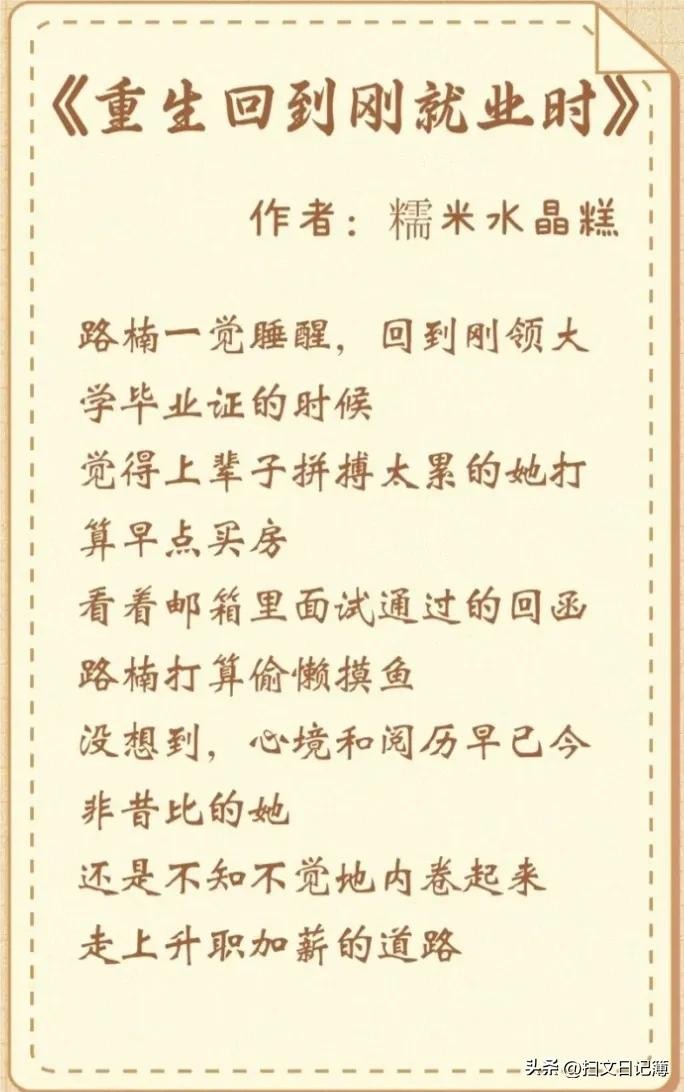 《重生回到刚就业时》
作者：糯米水晶糕
路楠一觉睡醒，回到刚领大
学毕业证的时候
觉得上辈子拼搏太累的她打
算早点买房
看着邮箱里面试通过的回函
路楠打算偷懒摸鱼
没想到，心境和阅历早已今
非昔比的她
还是不知不觉地内卷起来
走上升职加薪的道路
头条 @扫文日记簿